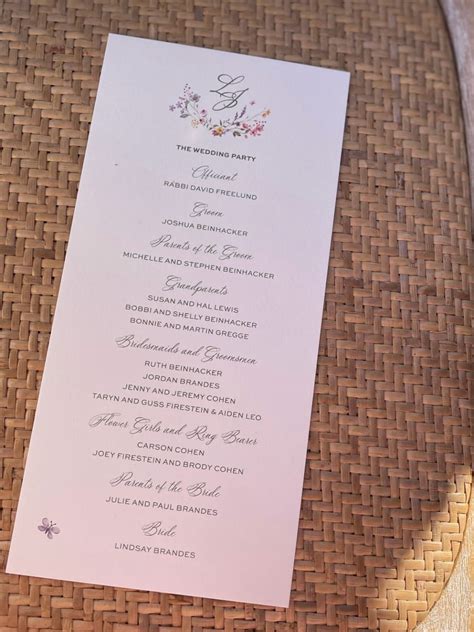 LJ
THE WEDDING PARTY
Officiant
RABBI DAVID FREELUND
Groom
JOSHUA BEINHACKER
Parents of the Groom
MICHELLE AND STEPHEN BEINHACKER
Grandparents
SUSAN AND HAL LEWIS
BOBBI AND SHELLY BEINHACKER
BONNIE AND MARTIN GREGGE
Bridesmaids and Groomsmen
RUTH BEINHACKER
JORDAN BRANDES
JENNY AND JEREMY COHEN
TARYN AND GUSS FIRESTEIN & AIDEN LEO
Flower Girls and Ring Bearer
CARSON COHEN
JOEY FIRESTEIN AND BRODY COHEN
Parents of the Bride
JULIE AND PAUL BRANDES
Bride
LINDSAY BRANDES